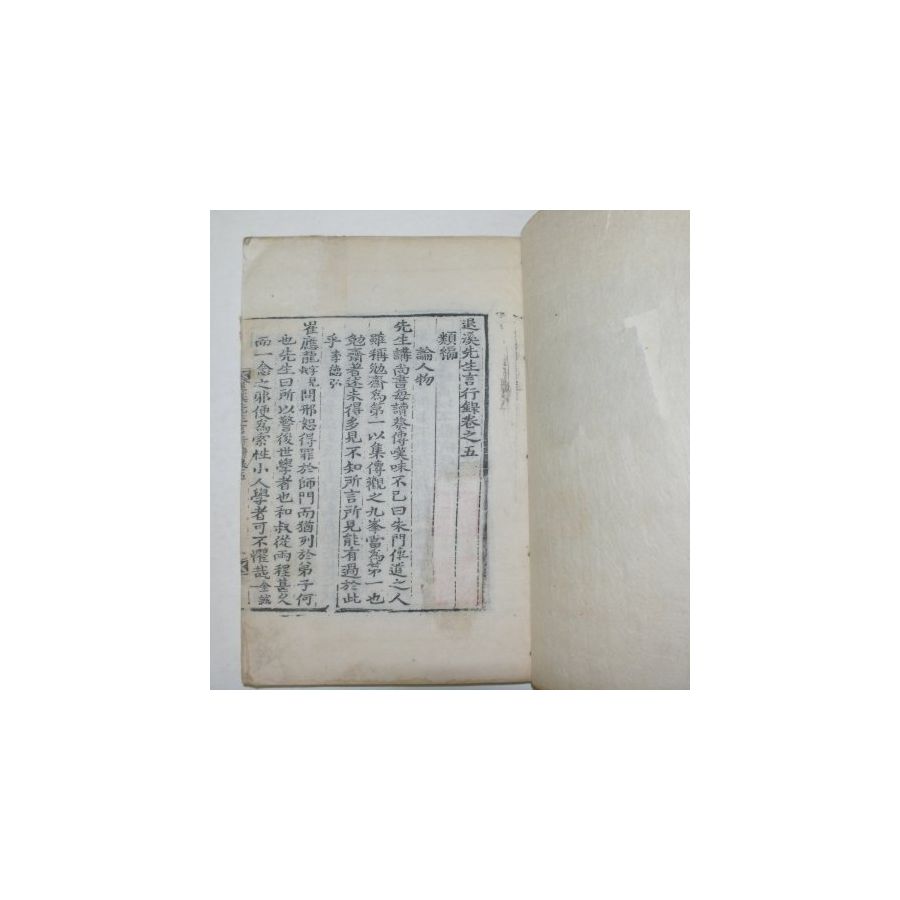 退溪先生言行錄卷之五
類編
論人物
先生講尚書每讀蔡傳嘆味不已曰朱門傳道之人
雖稱勉齋爲第一以集傳觀之九峯當爲第一也
勉齋者述未得多見不知所言所見能有過於此
乎 李德弘
崔應龍 見 問邢恕得罪於師門而猶列於弟子何
也先生曰所以警後世學者也和叔從兩程甚久
而一念之邪便爲索性小人學者可不懼哉 金